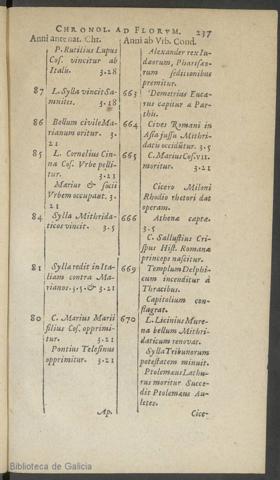 CHRONOL. AD FLORVM. 237
Anni ante nat. Chr.
P. Rutilius Lupus
Cos. vincitur ab
Italis. 3.18
87 L. Sylla vincit Sa-
mnites. 3.18
86 Bellum civile Ma-
rianum oritur. 3.
21
85 L. Cornelius Cin-
na Cos. Vrbe pelli-
tur. 3.21
Marius & socii
Vrbem occupant. 3.
21
84 Sylla Mithrida-
ticos vincit. 3.5
81 Sylla redit in Ita-
liam contra Ma-
rianos. 3.5. & 3.21
80 C. Marius Marii
filius Cos. opprimi-
tur. 3.21
Pontius Telesinus
opprimitur. 3.21
Ap.
Anni ab Vrb. Cond.
Alexander rex Iu-
daeorum, Pharisaeo-
rum seditionibus
premitur.
663 Demetrius Euca-
rus capitur a Par-
this.
664 Cives Romani in
Asia jussu Mithri-
datis occidūtur. 3.5
665 C. Marius Cos. VII.
moritur. 3.21
Cicero Miloni
Rhodio rhetori dat
operam.
666 Athenae captae.
3.5
C. Sallustius Cri-
spus Hist. Romanae
princeps nascitur.
669 Templum Delphi-
cum incenditur à
Thracibus.
Capitolium con-
flagrat.
670 L. Licinius Mure-
na bellum Mithri-
daticum renovat.
Sylla Tribunorum
potestatem minuit.
Ptolemaeus Lathu-
rus moritur Succe-
dit Ptolemaeus Au-
letes.
Cice-
Biblioteca de Galicia